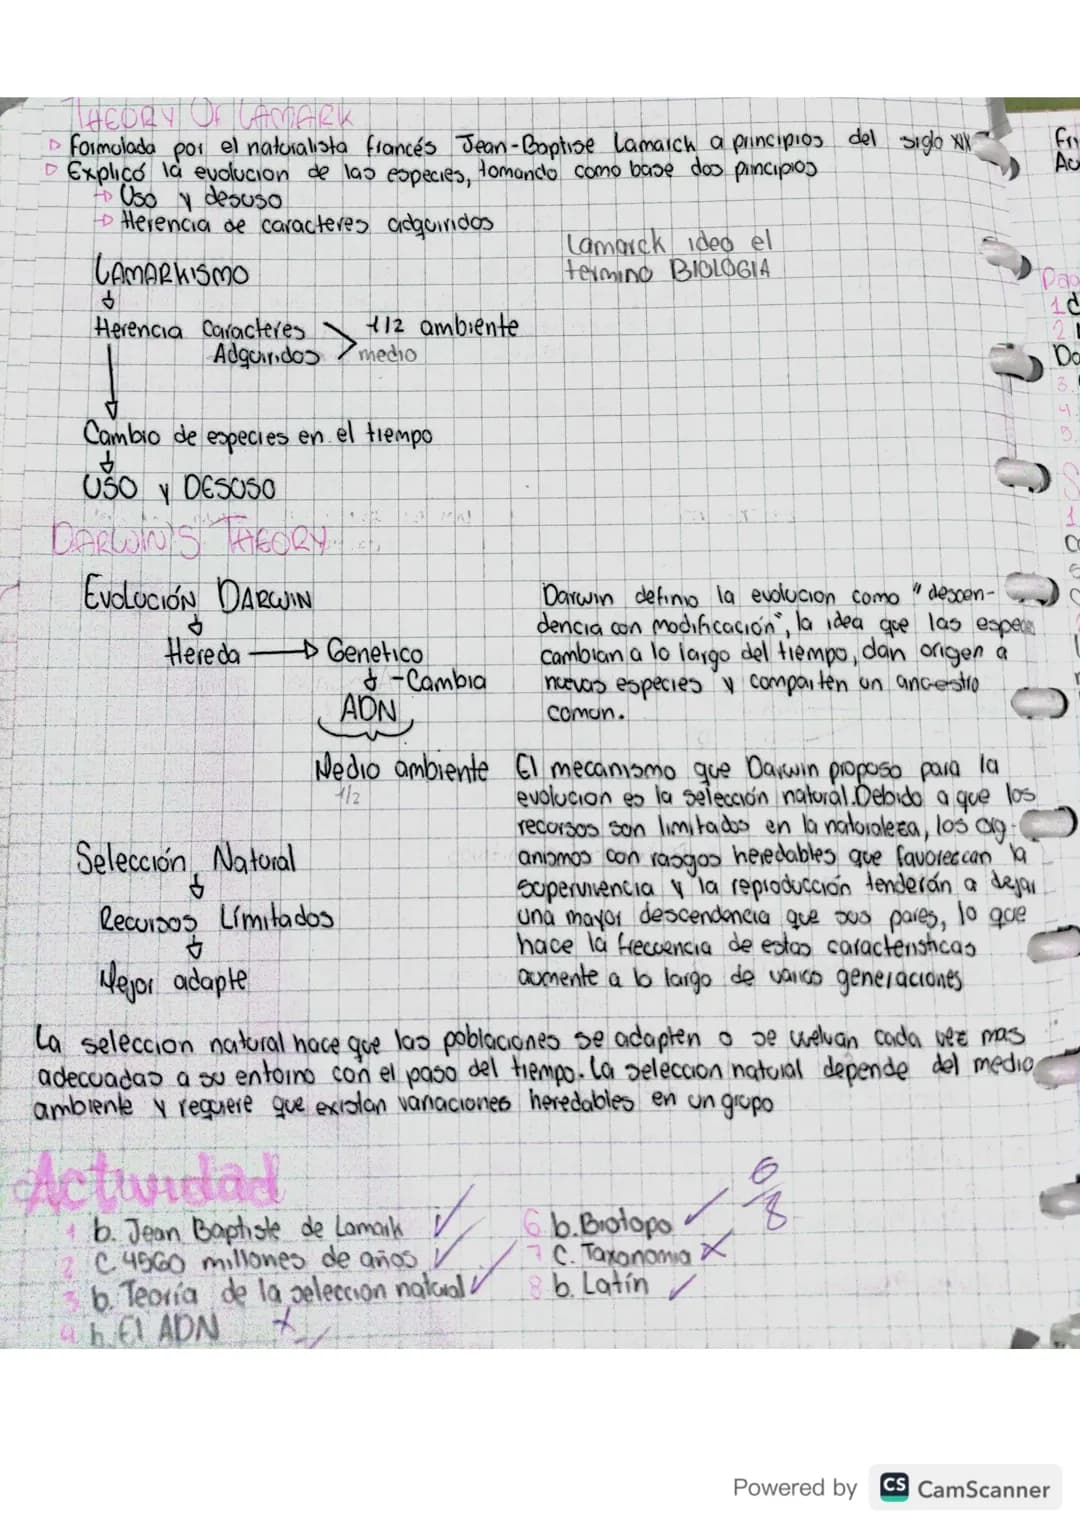 THEORY OF LAMARK
Formulada por el naturalista francés Jean-Baptise Lamarck a principios del siglo XIX
Explicó la evolucion de las especies, tomando como base dos principios
Uso y desuso
Herencia de caracteres adquiridos
Lamarck ideo el
termino BIOLOGIA
LAMARKISMO
Herencia Caracteres
Adquiridos
1/2 ambiente
medio
Cambio de especies en el tiempo
USO y DESUSO
DARWIN'S THEORY
Evolución DARWIN
Hereda → Genetico
-Cambia
ADN
Medio ambiente
1/2
Darwin definio la evolucion como "descen-
dencia con modificación", la idea que las especies
cambian a lo largo del tiempo, dan origen a
nuevas especies y comparten un ancestro
comun.
El mecanismo que Darwin proposo para la
evolucion es la selección natural. Debido a que los
recursos son limitados en la naturaleza, los org-
anismos con rasgos heredables que favorescan la
supervivencia y la reproducción tenderán a dejar
una mayor descendencia que sus pares, lo que
hace la frecuencia de estas caracteristicas
aumente a lo largo de varias generaciones
Selección Natural
Recursos Límitados
Mejor adapte
La seleccion natural hace que las poblaciones se adapten o se vuelvan cada vez mas
adecuadas a su entorno con el paso del tiempo. La seleccion natural depende del medio
ambiente y requiere que existan variaciones heredables en un grupo
Actividad
6/8
1 b. Jean Baptiste de Lamark
2 C. 4560 millones de años
3 b. Teoría de la seleccion natural
4 b. El ADN
6 b. Biotopo
7 C. Taxonomia
8 b. Latín
Powered by CS CamScanner